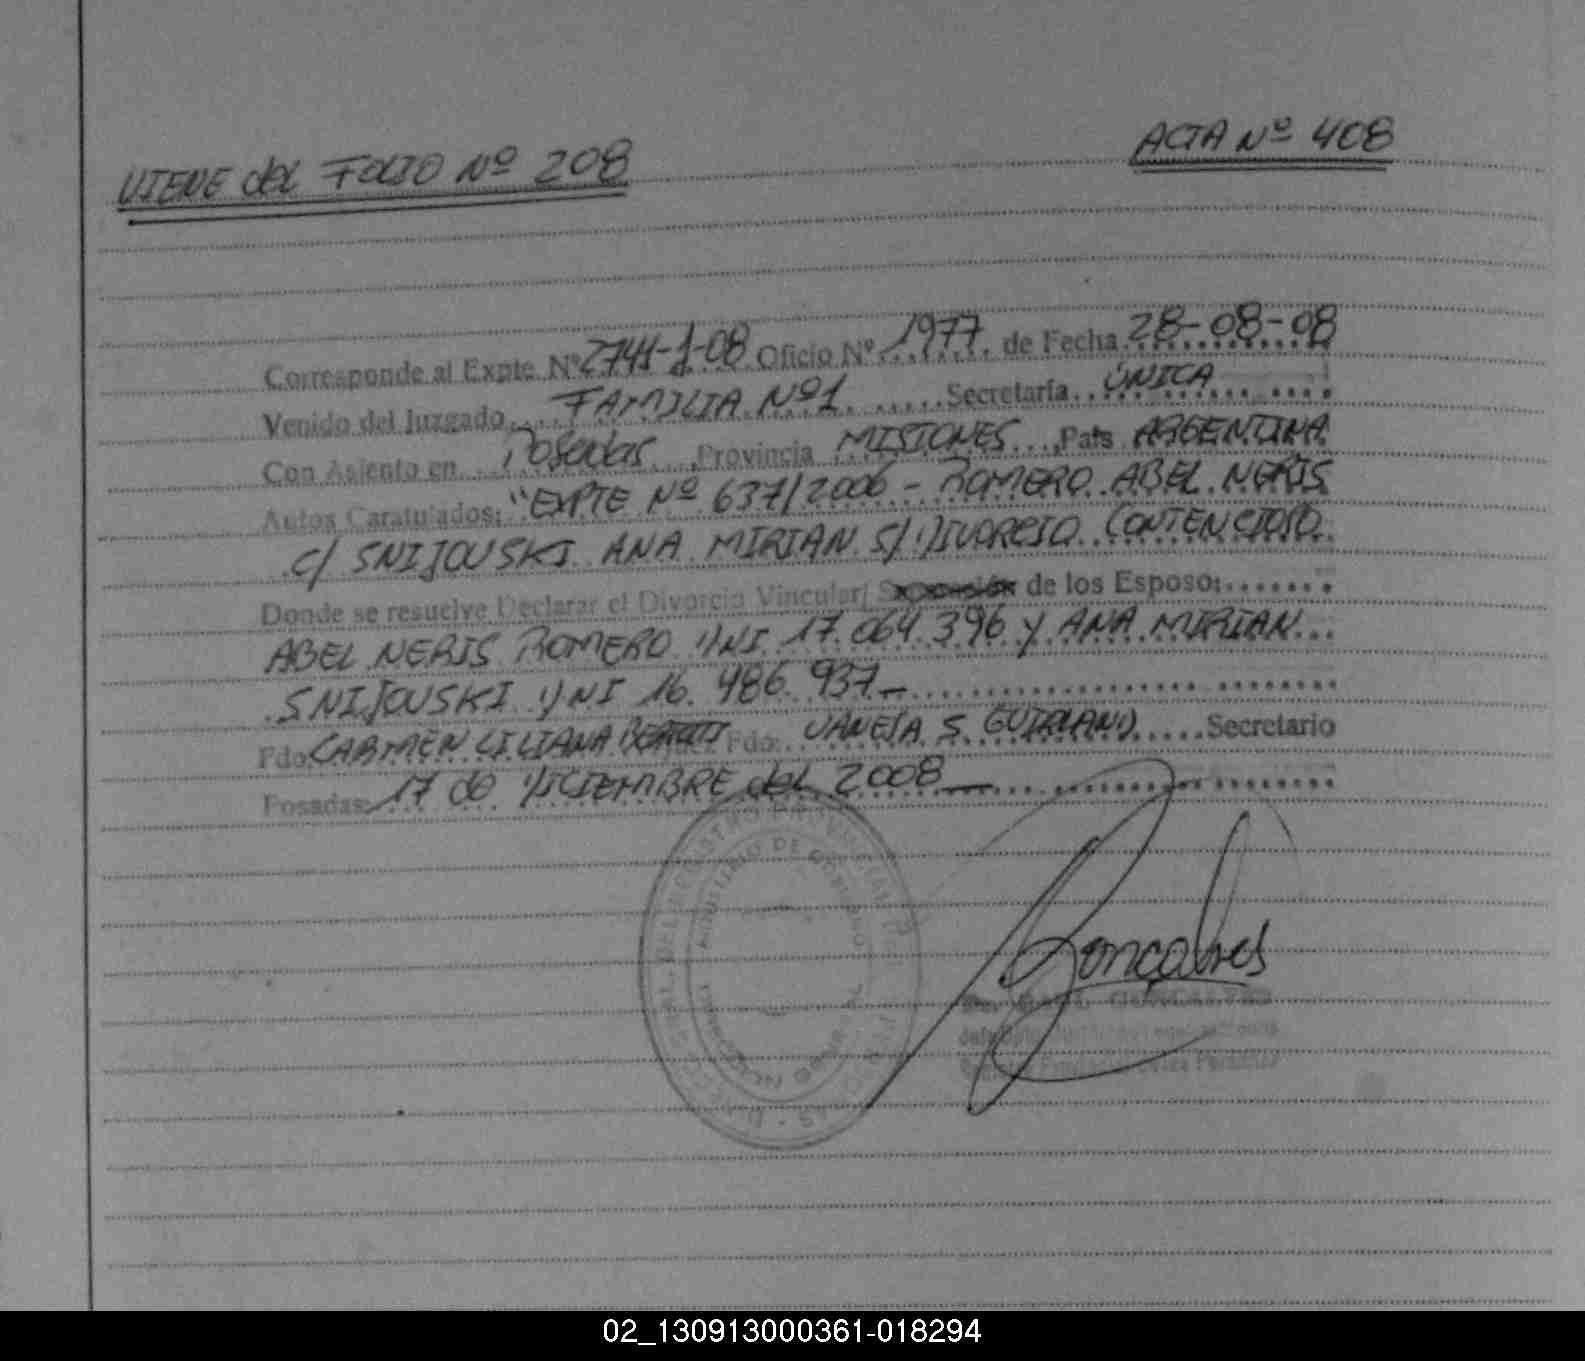 VIENE del FOLIO Nº 208
ACTA Nº 408
Corresponde al Expte Nº 2741-1-08 Oficio Nº 1977 de Fecha 28-08-08
Venido del Juzgado FAMILIA Nº1 Secretaría ÚNICA
Con Asiento en Posadas, Provincia MISIONES, País ARGENTINA
Autos Caratulados: "EXPTE Nº 637/2006 - ROMERO ABEL NERIS
C/ SNIJOVSKI ANA MIRIAN S/ DIVORCIO CONTENCIOSO
Donde se resuelve Declarar el Divorcio Vincular/ de los Esposo:
ABEL NERIS ROMERO DNI 17.064.396 y ANA MIRIAN
SNIJOVSKI DNI 16.486.937_
Fdo: CARMEN LILIANA Fdo: VANESA S. Secretario
Posadas: 17 de DICIEMBRE del 2008
REGISTRO PROVINCIAL DE
MINISTERIO DE GOBIERNO
Goncalves
02_130913000361-018294